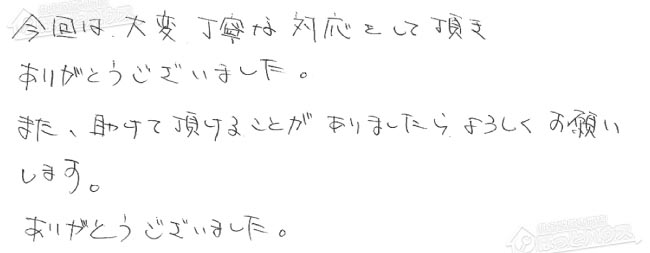 今回は、大変丁寧な対応をして頂き
ありがとうございました。
また、助けて頂けることがありましたらよろしくお願い
します。
ありがとうございました。